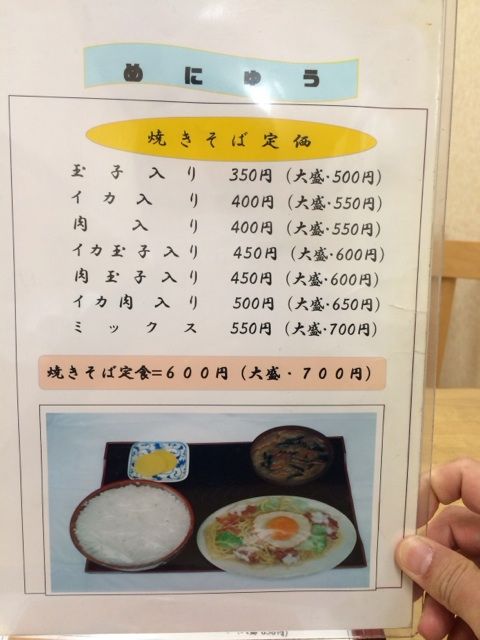 めにゅう
焼きそば定価
玉子入り 350円（大盛・500円）
イカ入り 400円（大盛・550円）
肉入り 400円（大盛・550円）
イカ玉子入り 450円（大盛・600円）
肉玉子入り 450円（大盛・600円）
イカ肉入り 500円（大盛・650円）
ミックス 550円（大盛・700円）
焼きそば定食=６００円（大盛・７００円）